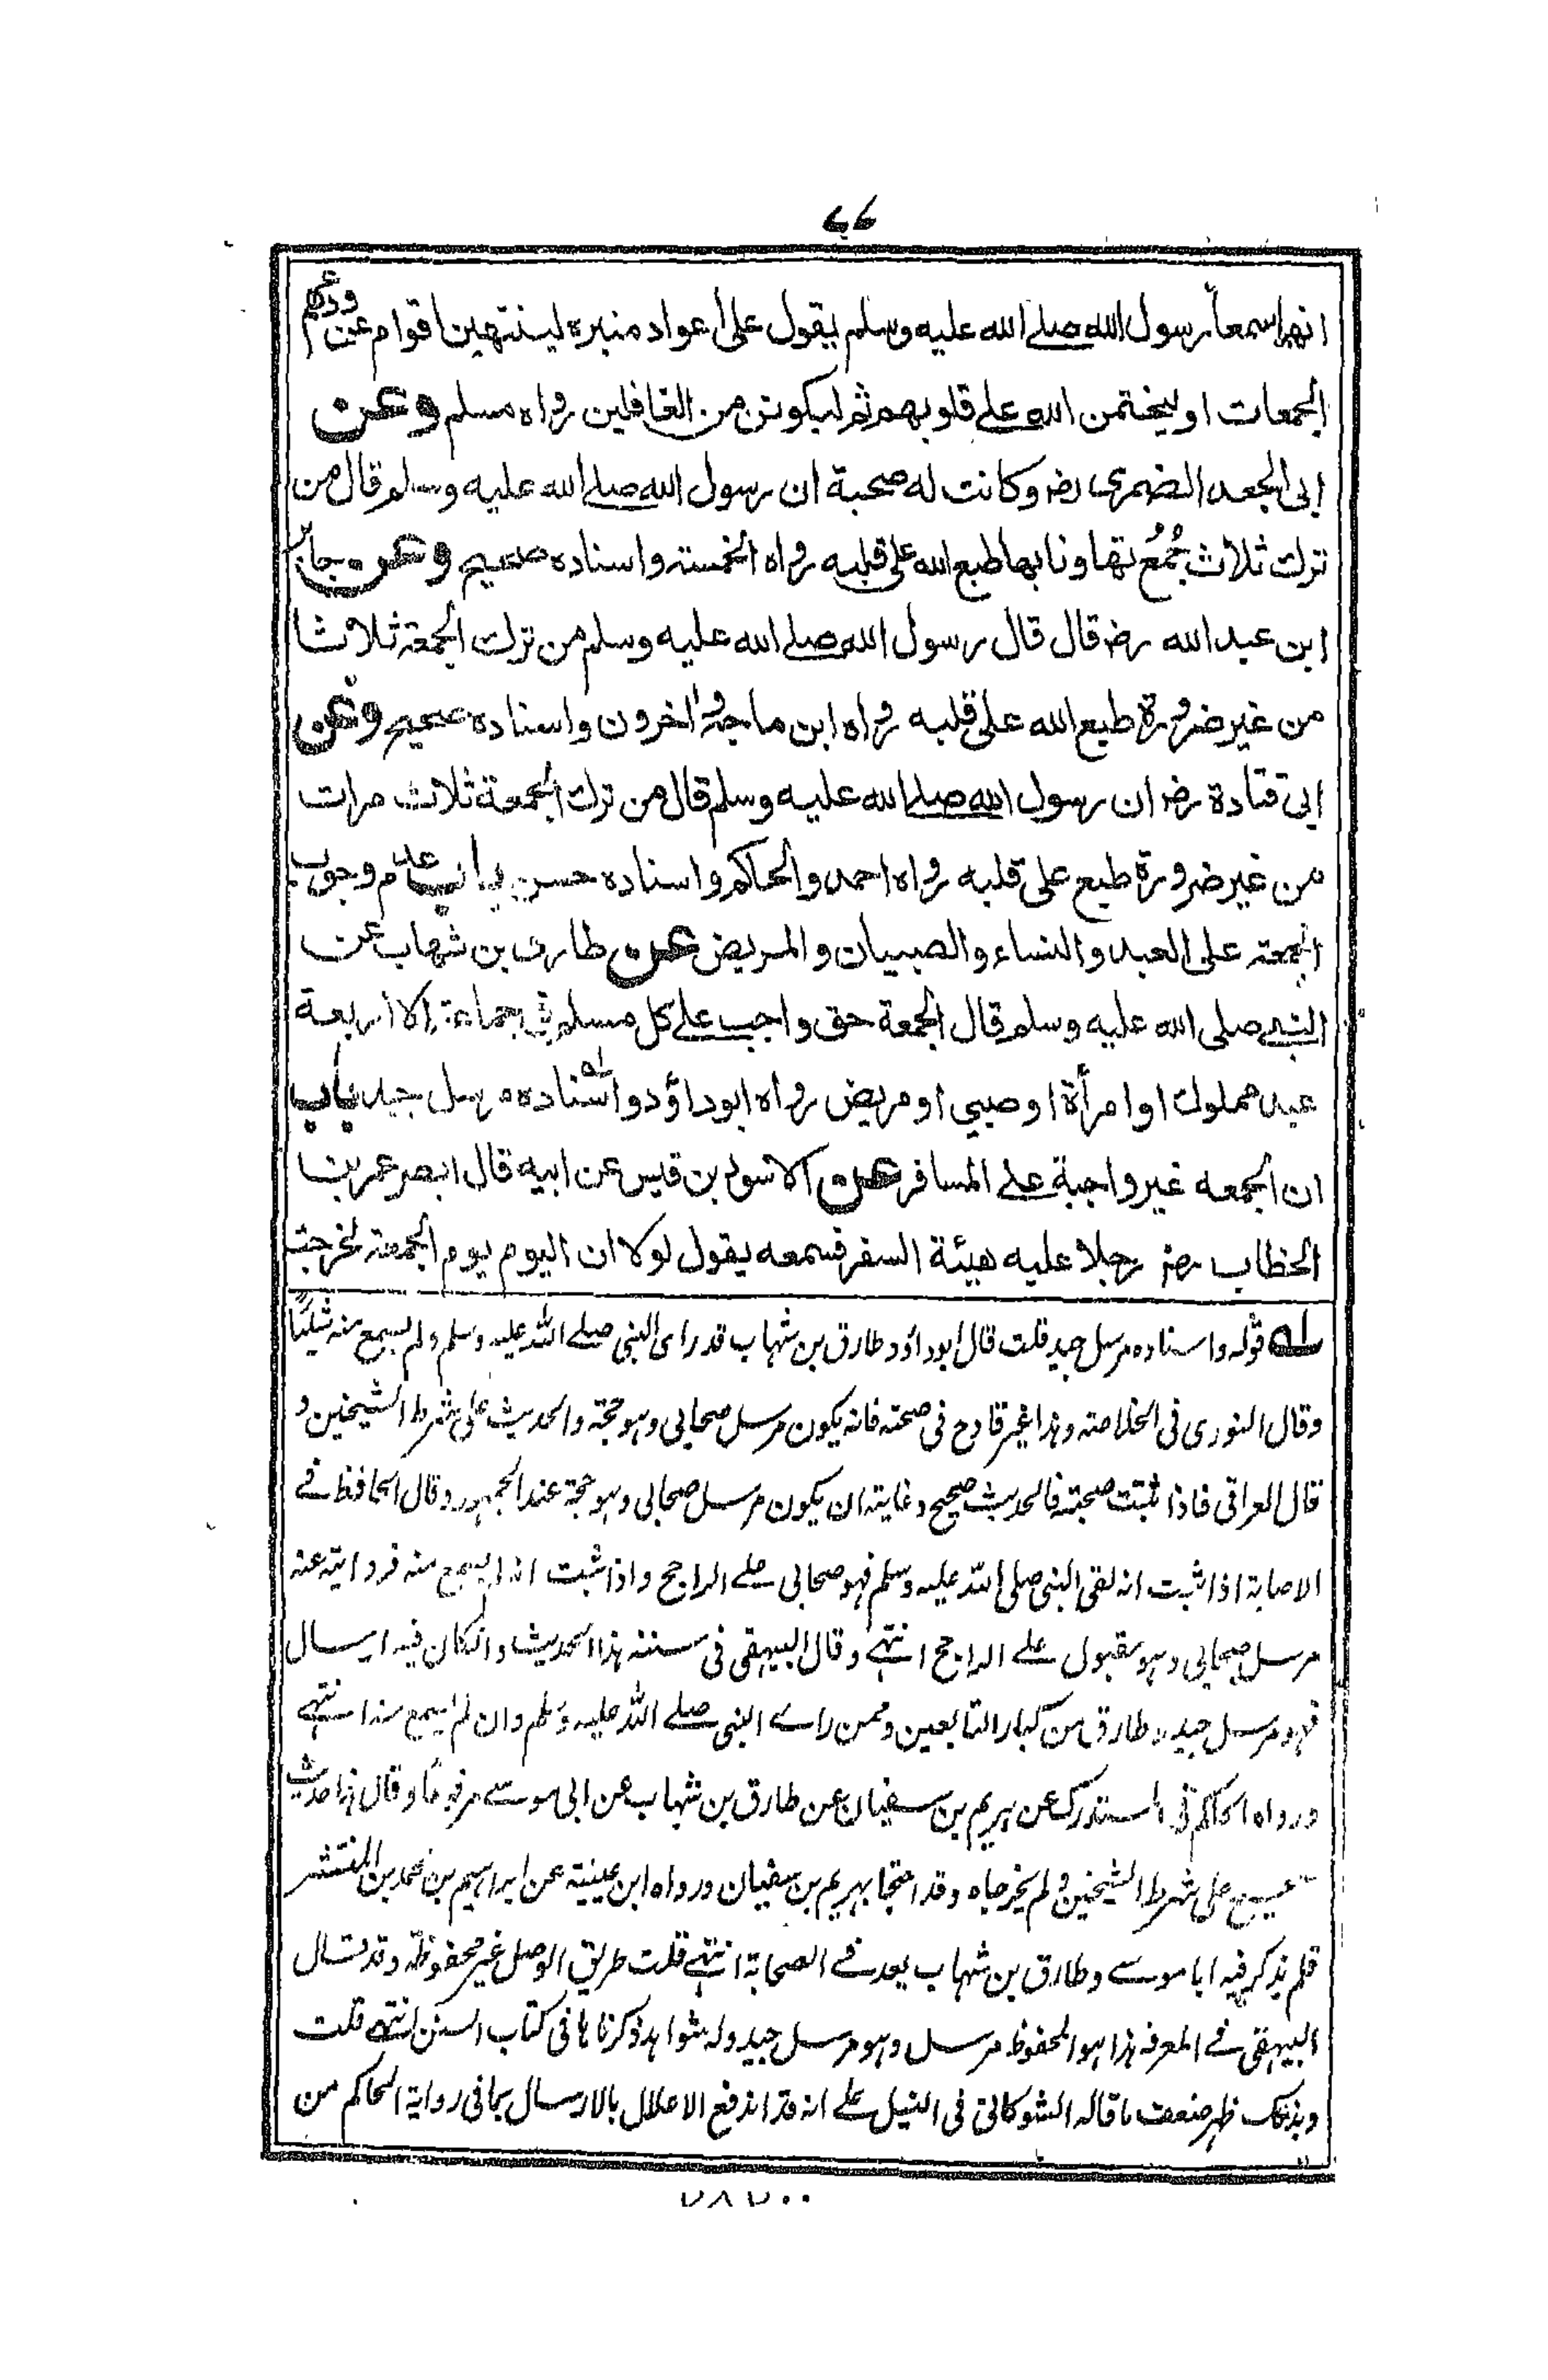 ٧٧
انهما سمعا رسول الله صلى الله عليه وسلم يقول على أعواد منبره لينتهين اقوام عن ودعهم
الجمعات او ليختمن الله على قلوبهم ثم ليكونن من الغافلين رواه مسلم وعن
ابى الجعد الضمرى رضـ وكانت له صحبة ان رسول الله صلى الله عليه وسلم قال من
ترك ثلاث جُمُع تهاونا بها طبع الله على قلبه رواه الخمسة واسناده صحيح وعن جابر
ابن عبد الله رضـ قال قال رسول الله صلى الله عليه وسلم من ترك الجمعة ثلاثا
من غير ضرورة طبع الله على قلبه رواه ابن ماجة واخرون واسناده صحيح وعن
ابى قتادة رضـ ان رسول الله صلى الله عليه وسلم قال من ترك الجمعة ثلاث مرات
من غير ضرورة طبع على قلبه رواه احمد والحاكم واسناده حسن باب عدم وجوب
الجمعة على العبد والنساء والصبيان والمريض عن طارق بن شهاب عن
النبى صلى الله عليه وسلم قال الجمعة حق واجب على كل مسلم فى جماعة الا أربعة
عبد مملوك او امرأة او صبيي او مريض رواه ابو داؤد واسناده مرسل جيد باب
ان الجمعه غير واجبة على المسافر عن الاسود بن قيس عن ابيه قال ابصر عمر بن
الخطاب رضـ رجلا عليه هيئة السفر فسمعه يقول لولا ان اليوم يوم الجمعة لخرجت
له قوله واسناده مرسل جيد قلت قال ابو داؤد طارق بن شهاب قد راى النبى صلى الله عليه وسلم ولم يسمع منه شيئًا
وقال النووى فى الخلاصة وهذا غير قادح فى صحته فانه يكون مرسل صحابى وهو حجة والحديث على شرط الشيخين و
قال العراقى فاذا ثبتت صحبته فالحديث صحيح وغايته ان يكون مرسل صحابى وهو حجة عند الجمهور وقال الحافظ فى
الاصابة اذا ثبت انه لقى النبى صلى الله عليه وسلم فهو صحابى على الراجح واذا ثبت انه لم يسمع منه فروايته عنه
مرسل صحابى وهو مقبول على الراجح انتهى وقال البيهقى فى سننه هذا الحديث وانكان فيه ارسال
فهو مرسل جيد وطارق من كبار التابعين وممن راى النبى صلى الله عليه وسلم وان لم يسمع منه انتهى
ورواه الحاكم فى المستدرك عن هريم بن سفيان عن طارق بن شهاب عن ابى موسى مرفوعًا وقال هذا حديث
صحيح على شرط الشيخين ولم يخرجاه وقد احتجا بهريم بن سفيان ورواه ابن عيينة عن ابراهيم بن محمد بن المنتشر
فلم يذكر فيه ابا موسى وطارق بن شهاب يعد فى الصحابة انتهى قلت طريق الوصل غير محفوظة وقد قال
البيهقى فى المعرفه هذا هو المحفوظ مرسل وهو مرسل جيد وله شواهد ذكرناها فى كتاب السنن انتهى قلت
وبذلك ظهر ضعف ما قاله الشوكانى فى النيل على انه قد اندفع الاعلال بالارسال بما فى رواية الحاكم من
٧٨٧٠٠